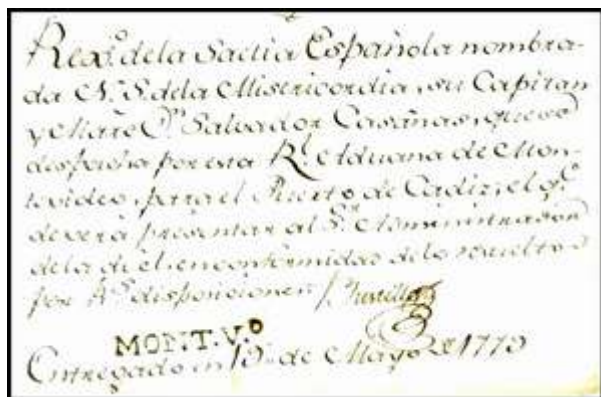 Rexº. dela Saetia Española nombra-
da N. S. dela Misericordia, su Capitan
y Märe Dn. Salvador Casañas, que se
despacha por esta Rl. Aduana de Mon-
tevideo, para el Puerto de Cadiz, el qe.
deverá presentar al Sr. Administrador
dela de el, en conformidad delo resuelto
por Rs. disposiciones
MONT.Vº
Entregado en de Mayo de 1779